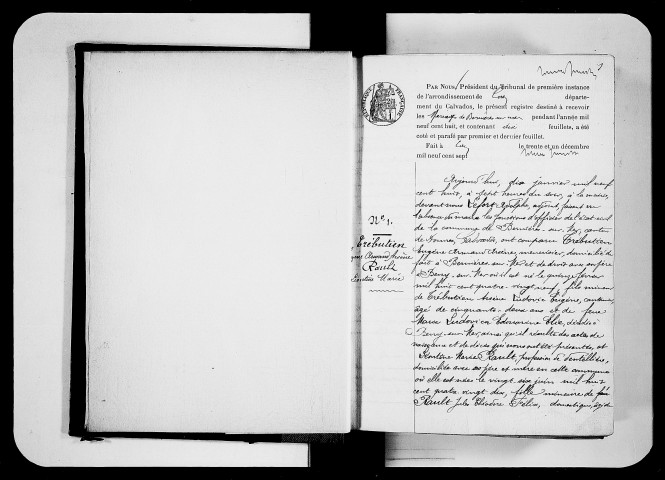 1
PAR NOUS, Président du Tribunal de première instance
de l'arrondissement de Caen départe-
ment du Calvados, le présent registre destiné à recevoir
les Mariages de Bernières sur mer pendant l'année mil
neuf cent huit, et contenant dix feuillets, a été
coté et parafé par premier et dernier feuillet.
Fait à Caen le trente et un décembre
mil neuf cent sept
RÉPUBLIQUE FRANÇAISE
N° 1.
Trébutien
Armand Arsène
Rault
Léontine Marie
Aujourd'hui, dix janvier mil neuf
cent huit, à sept heures du soir, à la mairie,
devant nous Adolphe, adjoint, faisant en
l'absence du maire les fonctions d'officier de l'état civil
de la commune de Bernières-sur-Mer, canton
de Douvres, Calvados, ont comparu Trébutien
Eugène Armand Arsène, menuisier, domicilié de
fait à Bernières-sur-Mer et de droit avec son père
à Bény-sur-Mer où il est né le quinze février
mil huit cent quatre-vingt-neuf, fils mineur
de Trébutien Arsène Ludovic Eugène,
âgé de cinquante-deux ans et de feue
Marie Ludovica Edmondine Elie, décédée
à Bény-sur-Mer, ainsi qu'il résulte des actes de
naissance et de décès qui nous ont été présentés, et
Léontine Marie Rault, profession de dentellière,
domiciliée avec son père et mère en cette commune
où elle est née le vingt six juin mil huit
cent quatre vingt dix, fille mineure de
Rault Jules Théodore Félix, domestique, âgé de